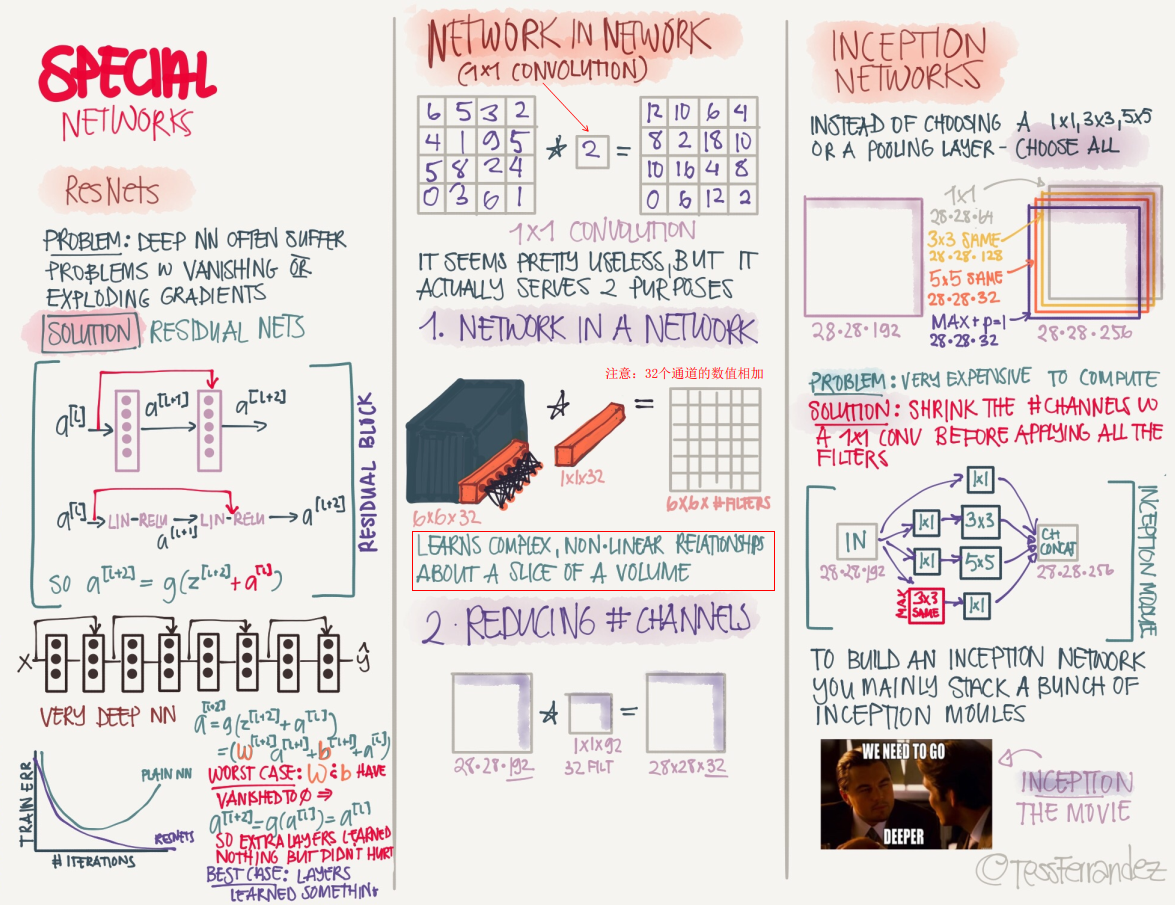 SPECIAL
NETWORKS
ResNets
PROBLEM: DEEP NN OFTEN SUFFER
PROBLEMS W VANISHING OR
EXPLODING GRADIENTS
SOLUTION RESIDUAL NETS
a[l] a[l+1] a[l+2]
a[l] LIN-RELU LIN-RELU a[l+2]
a[l+1]
SO a[l+2] = g(z[l+2] + a[l])
RESIDUAL BLOCK
X ŷ
VERY DEEP NN
a[l+2] = g(z[l+2] + a[l])
= (W[l+2] a[l+1] + b[l+1] + a[l])
WORST CASE: W & b HAVE
VANISHED TO 0 ⇒
a[l+2] = g(a[l]) = a[l]
SO EXTRA LAYERS LEARNED
NOTHING BUT DIDN'T HURT
BEST CASE: LAYERS
LEARNED SOMETHING
TRAIN ERR
PLAIN NN
RESNETS
# ITERATIONS
NETWORK IN NEWORK
(1x1 CONVOLUTION)
6 5 3 2
4 1 9 5
5 8 2 4
0 3 6 1
* 2 =
12 10 6 4
8 2 18 10
10 16 4 8
0 6 12 2
1x1 CONVOLUTION
IT SEEMS PRETTY USELESS, BUT IT
ACTUALLY SERVES 2 PURPOSES
1. NETWORK IN A NETWORK
注意：32个通道的数值相加
* =
1x1x32
6x6x32
6x6x # FILTERS
LEARNS COMPLEX, NON-LINEAR RELATIONSHIPS
ABOUT A SLICE OF A VOLUME
2. REDUCING # CHANNELS
* =
28·28·192
1x1x92
32 FILT
28x28x32
INCEPTION
NETWORKS
INSTEAD OF CHOOSING A 1x1, 3x3, 5x5
OR A POOLING LAYER - CHOOSE ALL
1x1
28·28·64
3x3 SAME
28·28·128
5x5 SAME
28·28·32
MAX + p=1
28·28·32
28·28·192
28·28·256
PROBLEM: VERY EXPENSIVE TO COMPUTE
SOLUTION: SHRINK THE #CHANNELS W
A 1x1 CONV BEFORE APPLYING ALL THE
FILTERS
1x1
IN 1x1 3x3
1x1 5x5
CH
CONCAT
28·28·192
28·28·256
MAX 3x3
SAME 1x1
INCEPTION MODULE
TO BUILD AN INCEPTION NETWORK
YOU MAINLY STACK A BUNCH OF
INCEPTION MOULES
WE NEED TO GO
DEEPER
INCEPTION
THE MOVIE
©TessFerrandez